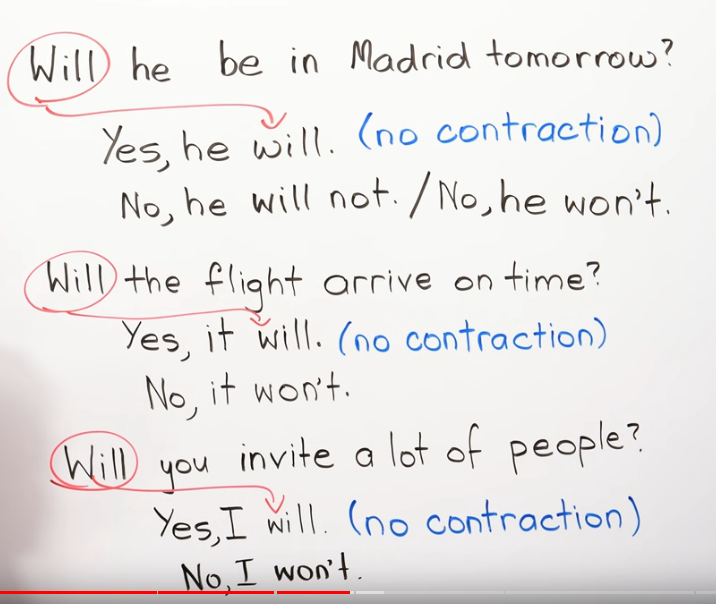 Will he be in Madrid tomorrow?
Yes, he will. (no contraction)
No, he will not. / No, he won't.
Will the flight arrive on time?
Yes, it will. (no contraction)
No, it won't.
Will you invite a lot of people?
Yes, I will. (no contraction)
No, I won't.